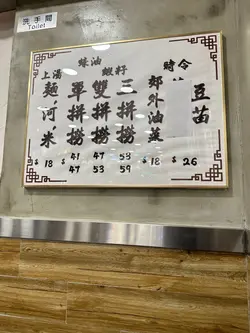 洗手間
Toilet
上湯
麵、河、米
$18
蠔油
蝦籽
單拼撈
$41
47
雙拼撈
47
53
三拼撈
53
59
郊外油菜
$18
時令
豆苗
$26